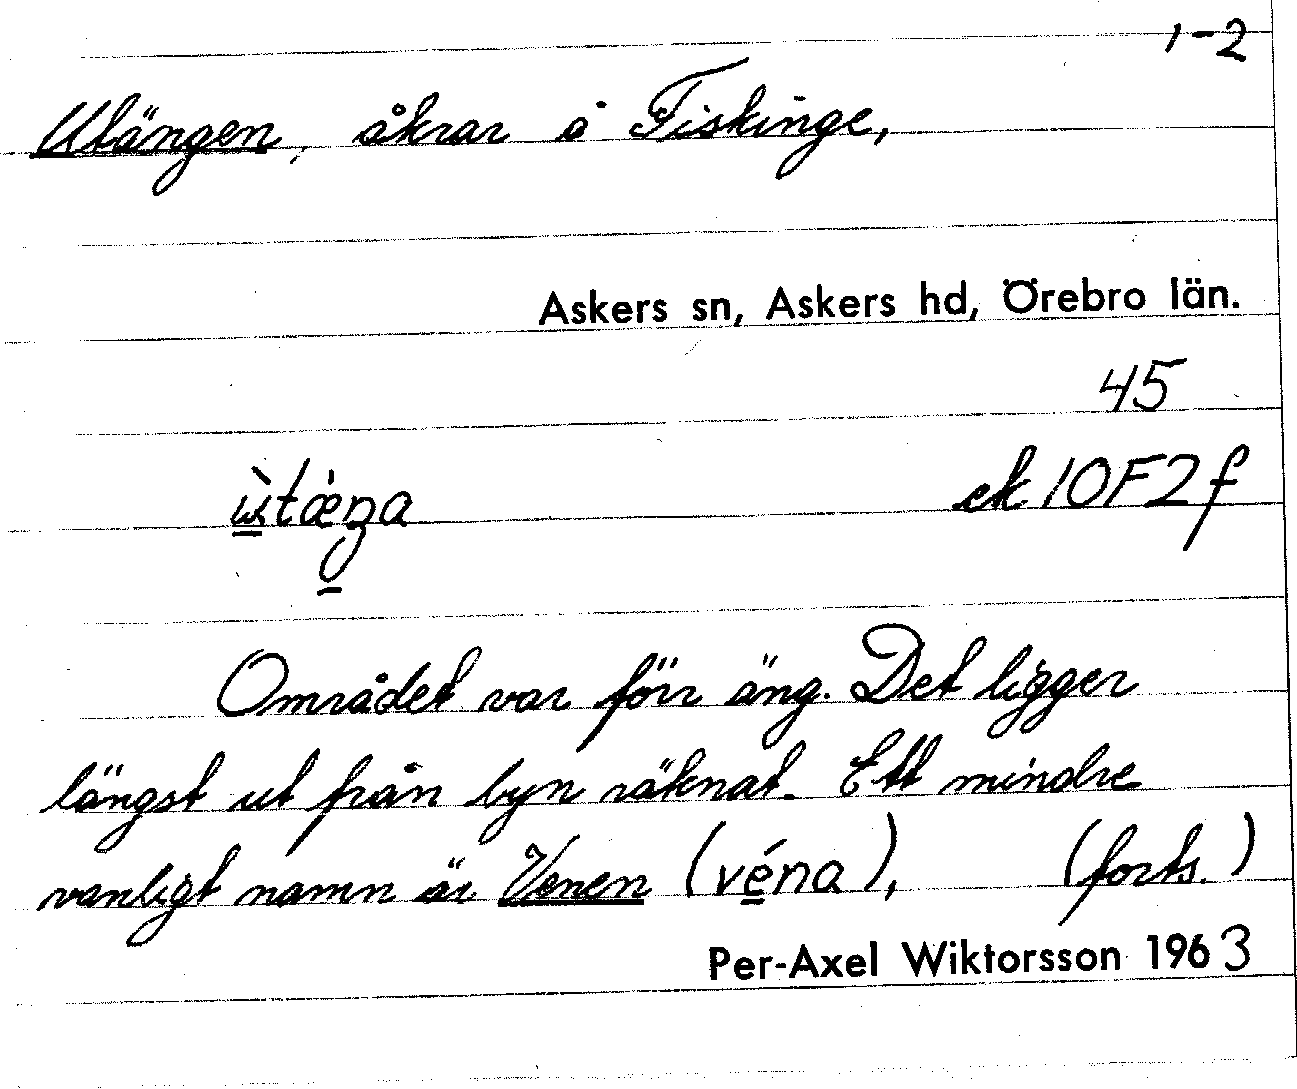 1-2
Utängen, åkrar å Fiskinge,
Askers sn, Askers hd, Örebro län.
45
ek 10F2f
Området var förr äng. Det ligger
längst ut från byn räknat. Ett mindre
vanligt namn är Venen (véna), (forts.)
Per-Axel Wiktorsson 1963